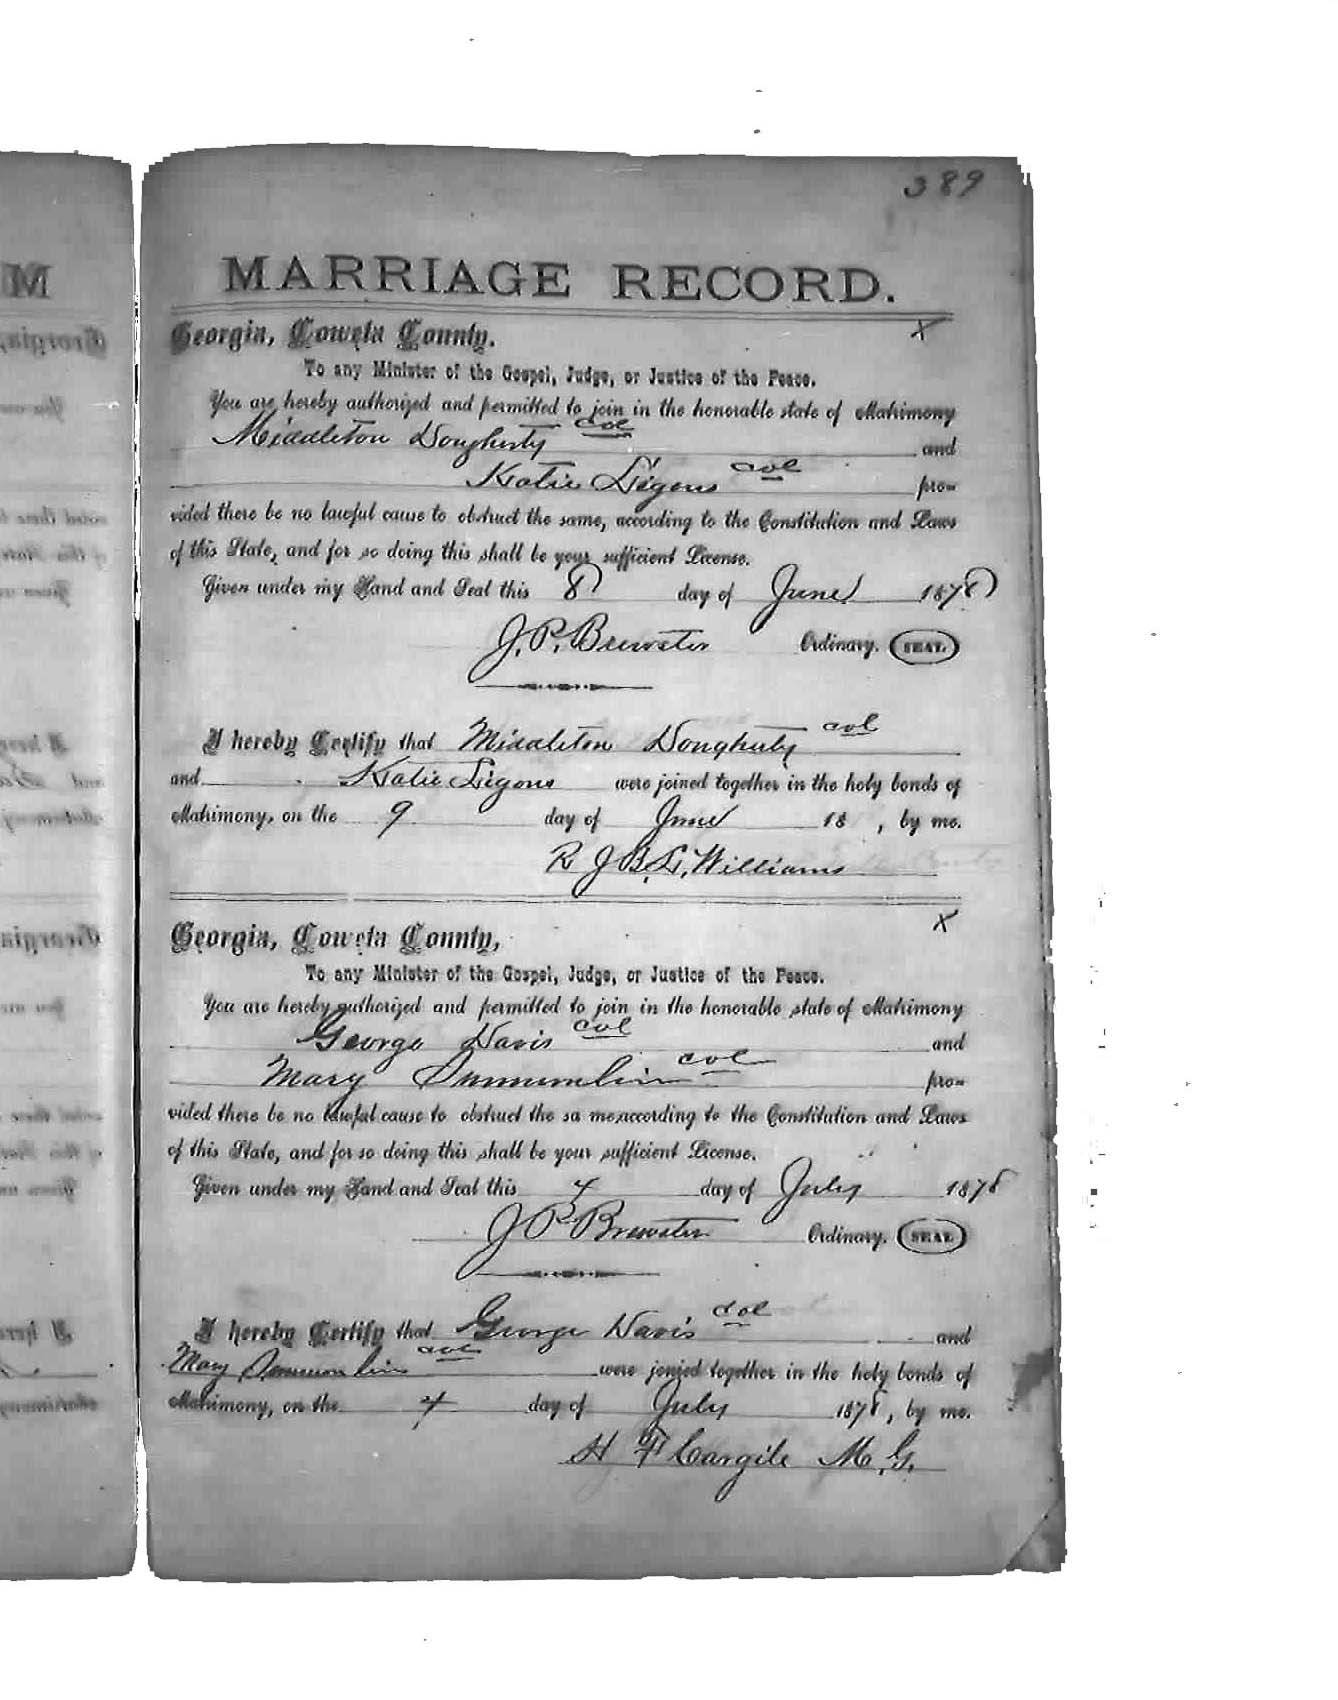 389
MARRIAGE RECORD.
Georgia, Coweta County. X
To any Minister of the Gospel, Judge, or Justice of the Peace.
You are hereby authorized and permitted to join in the honorable state of Matrimony
Middleton Dougherty col and
Katie Ligons col pro-
vided there be no lawful cause to obstruct the same, according to the Constitution and Laws
of this State, and for so doing this shall be your sufficient License.
Given under my Hand and Seal this 8 day of June 1878
J. P. Brewster Ordinary. SEAL.
I hereby Certify that Middleton Dougherty col
and Katie Ligons were joined together in the holy bonds of
Matrimony, on the 9 day of June 18 , by me.
R J B. L. Williams
Georgia, Coweta County, X
To any Minister of the Gospel, Judge, or Justice of the Peace.
You are hereby authorized and permitted to join in the honorable state of Matrimony
George Davis col and
Mary col pro-
vided there be no lawful cause to obstruct the sa me,according to the Constitution and Laws
of this State, and for so doing this shall be your sufficient License.
Given under my Hand and Seal this 4 day of July 1878
J P Brewster Ordinary. SEAL
I hereby Certify that George Davis col and
Mary col were jonied together in the holy bonds of
Matrimony, on the 4 day of July 1878, by me.
H F Cargile M. G.